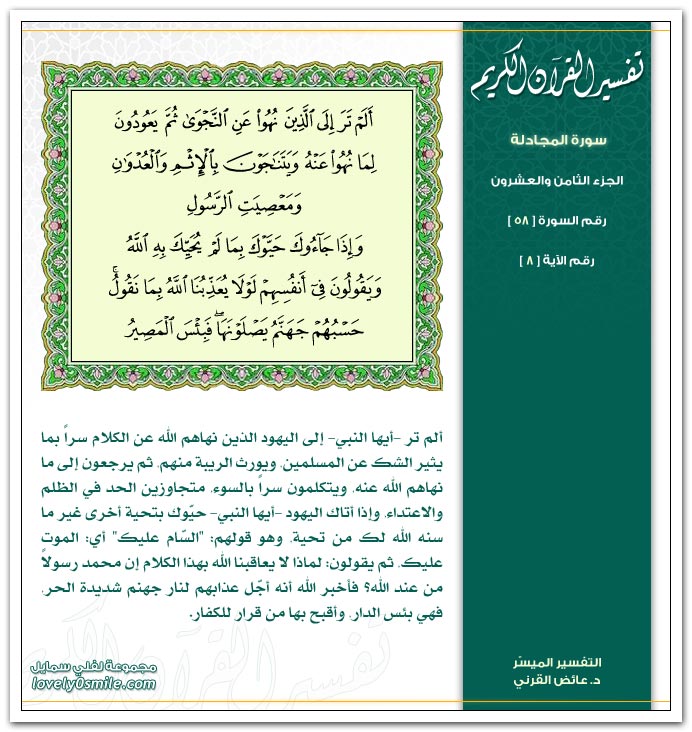 تفسير القرآن الكريم
سورة المجادلة
الجزء الثامن والعشرون
رقم السورة [ ٥٨ ]
رقم الآية [ ٨ ]
أَلَمْ تَرَ إِلَى ٱلَّذِينَ نُهُوا۟ عَنِ ٱلنَّجْوَىٰ ثُمَّ يَعُودُونَ
لِمَا نُهُوا۟ عَنْهُ وَيَتَنَـٰجَوْنَ بِٱلْإِثْمِ وَٱلْعُدْوَٰنِ
وَمَعْصِيَتِ ٱلرَّسُولِ
وَإِذَا جَآءُوكَ حَيَّوْكَ بِمَا لَمْ يُحَيِّكَ بِهِ ٱللَّهُ
وَيَقُولُونَ فِىٓ أَنفُسِهِمْ لَوْلَا يُعَذِّبُنَا ٱللَّهُ بِمَا نَقُولُ ۚ
حَسْبُهُمْ جَهَنَّمُ يَصْلَوْنَهَا ۖ فَبِئْسَ ٱلْمَصِيرُ
ألم تر -أيها النبي- إلى اليهود الذين نهاهم الله عن الكلام سراً بما
يثير الشك عن المسلمين، ويورث الريبة منهم، ثم يرجعون إلى ما
نهاهم الله عنه، ويتكلمون سراً بالسوء، متجاوزين الحد في الظلم
والاعتداء، وإذا أتاك اليهود -أيها النبي- حيّوك بتحية أخرى غير ما
سنه الله لك من تحية، وهو قولهم: "السّام عليك" أي: الموت
عليك، ثم يقولون: لماذا لا يعاقبنا الله بهذا الكلام إن محمد رسولاً
من عند الله؟ فأخبر الله أنه أجّل عذابهم لنار جهنم شديدة الحر،
فهي بئس الدار، وأقبح بها من قرار للكفار.
التفسير الميسّر
د. عائض القرني
مجموعة لفلي سمايل
lovely0smile.com